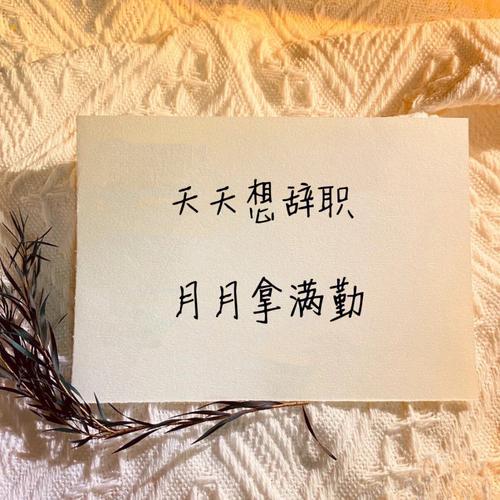 天天想辞职
月月拿满勤